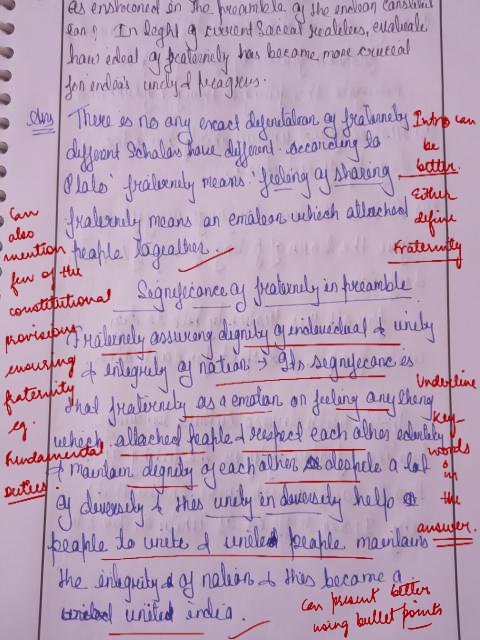 as enshrined in the preamble of the endean constitut
ion? In leght of current Social realetees, evaluate
how edeal of fraternety has become more crucial
for endea's unety & progress.
Ans There es no any exact defenetaion of fraternety
different Scholars have different. according to
Plato' fraternety means 'feeling of sharing
fraternety means an emotion which attached
people together.
Intro can
be
better.
Either
define
Fraternity
Can
also
mention
few of the
constitutional
provisions
ensuring
fraternity
eg.
Fundamental
duties
Segneficance of fraternety in preamble
Fraternety assureng dignety of endeveduel & unety
& integrety of nation → Its segnefecance es
that fraternety as a emotion or feeling any theng
which attached people & respect each other
& maintain dignety of each other despete a lot
of deversety & thes unety in deversety help
people to unete & uneted people maintains
the integrety of nation & thes became a
united endea.
Underline
Key-
words
in
the
answer.
can present better
using bullet points